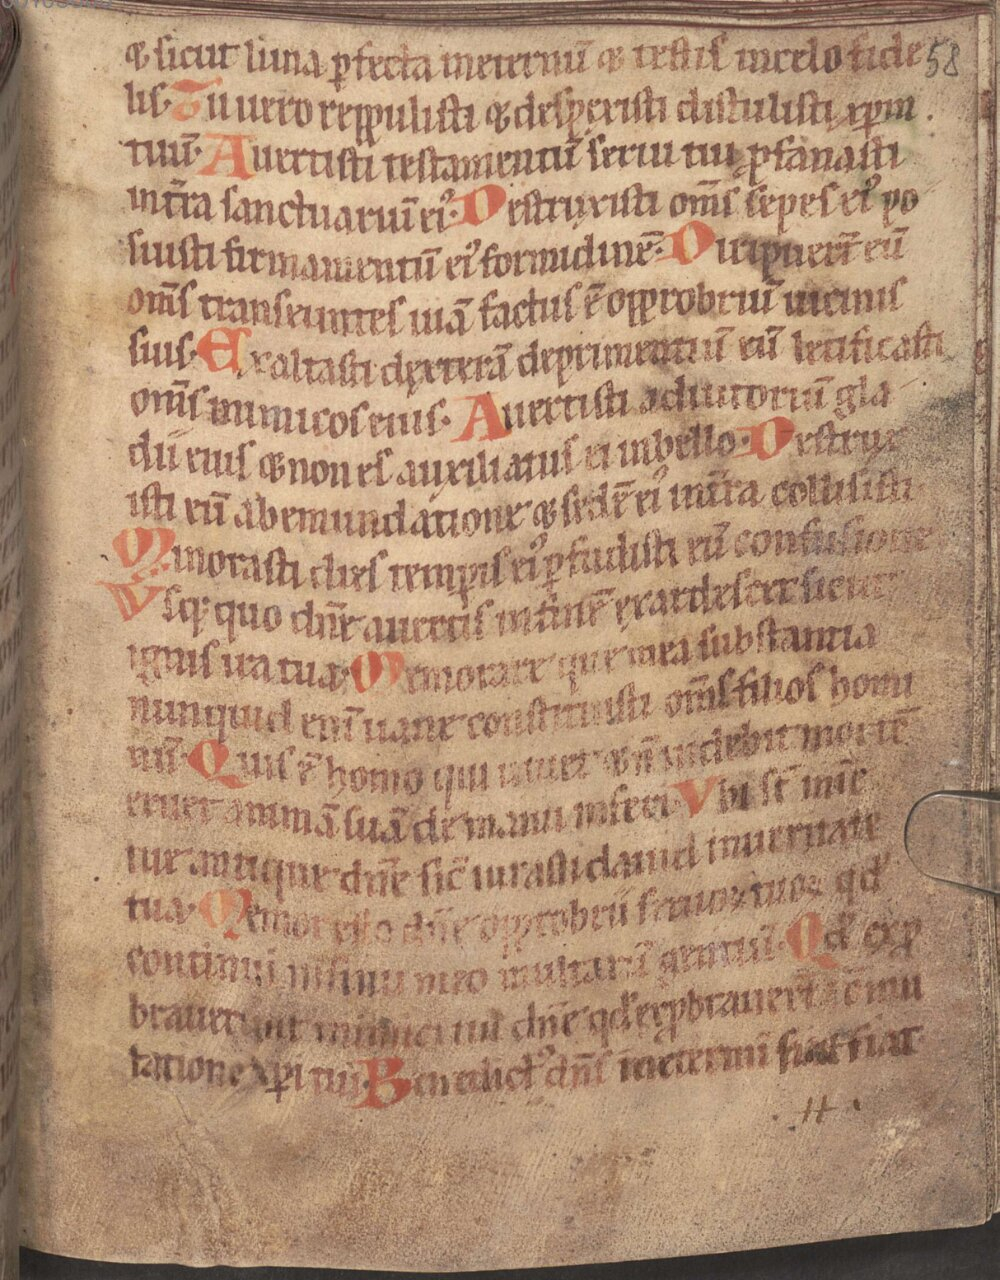 58
& sicut luna pfecta ineternū & testis incelo fide
lis. Tu uero reppulisti & despexisti distulisti xpm
tuū. Auertisti testamentū serui tui pfanasti
int̄ra sanctuariū eiꝰ. Destruxisti om̄s sepes eiꝰ po
suisti firmamentū eiꝰ formidinē. Diripuer̄t eū
om̄s transeuntes uiā factus ē opprobriū uicinis
suis. Exaltasti dexterā deprimentiū eū letificasti
om̄s inimicos eius. Auertisti adiutoriū gla
dii eius & non es auxiliatus ei inbello. Destrux
isti eū abemundatione & sedē eiꝰ int̄ra collisisti
Minorasti dies tempis eiꝰ pfudisti eū confusione
Vsq; quo dn̄e auertis infinē exardescet sicut
ignis ira tua. Memorare que mea substantia
nunquid eni̅ uane constituisti om̄s filios homi
nū. Quis ē homo qui uiuet & n̄ uidebit mortē
eruet animā suā de manu inferi. Vbi st̄ mīe
tue antique dn̄e sic̄ iurasti dauid inueritate
tua. Memor esto dn̄e opprobrii seruoꝝ tuoꝝ qd̕
continui insinu meo multarū gentiū. Qd̕ exp
brauerunt inimici tui dn̄e qd̕ expbrauer̄t c̄mu
tatione xpi tui. Benedictꝰ dn̄s ineternū fiat fiat